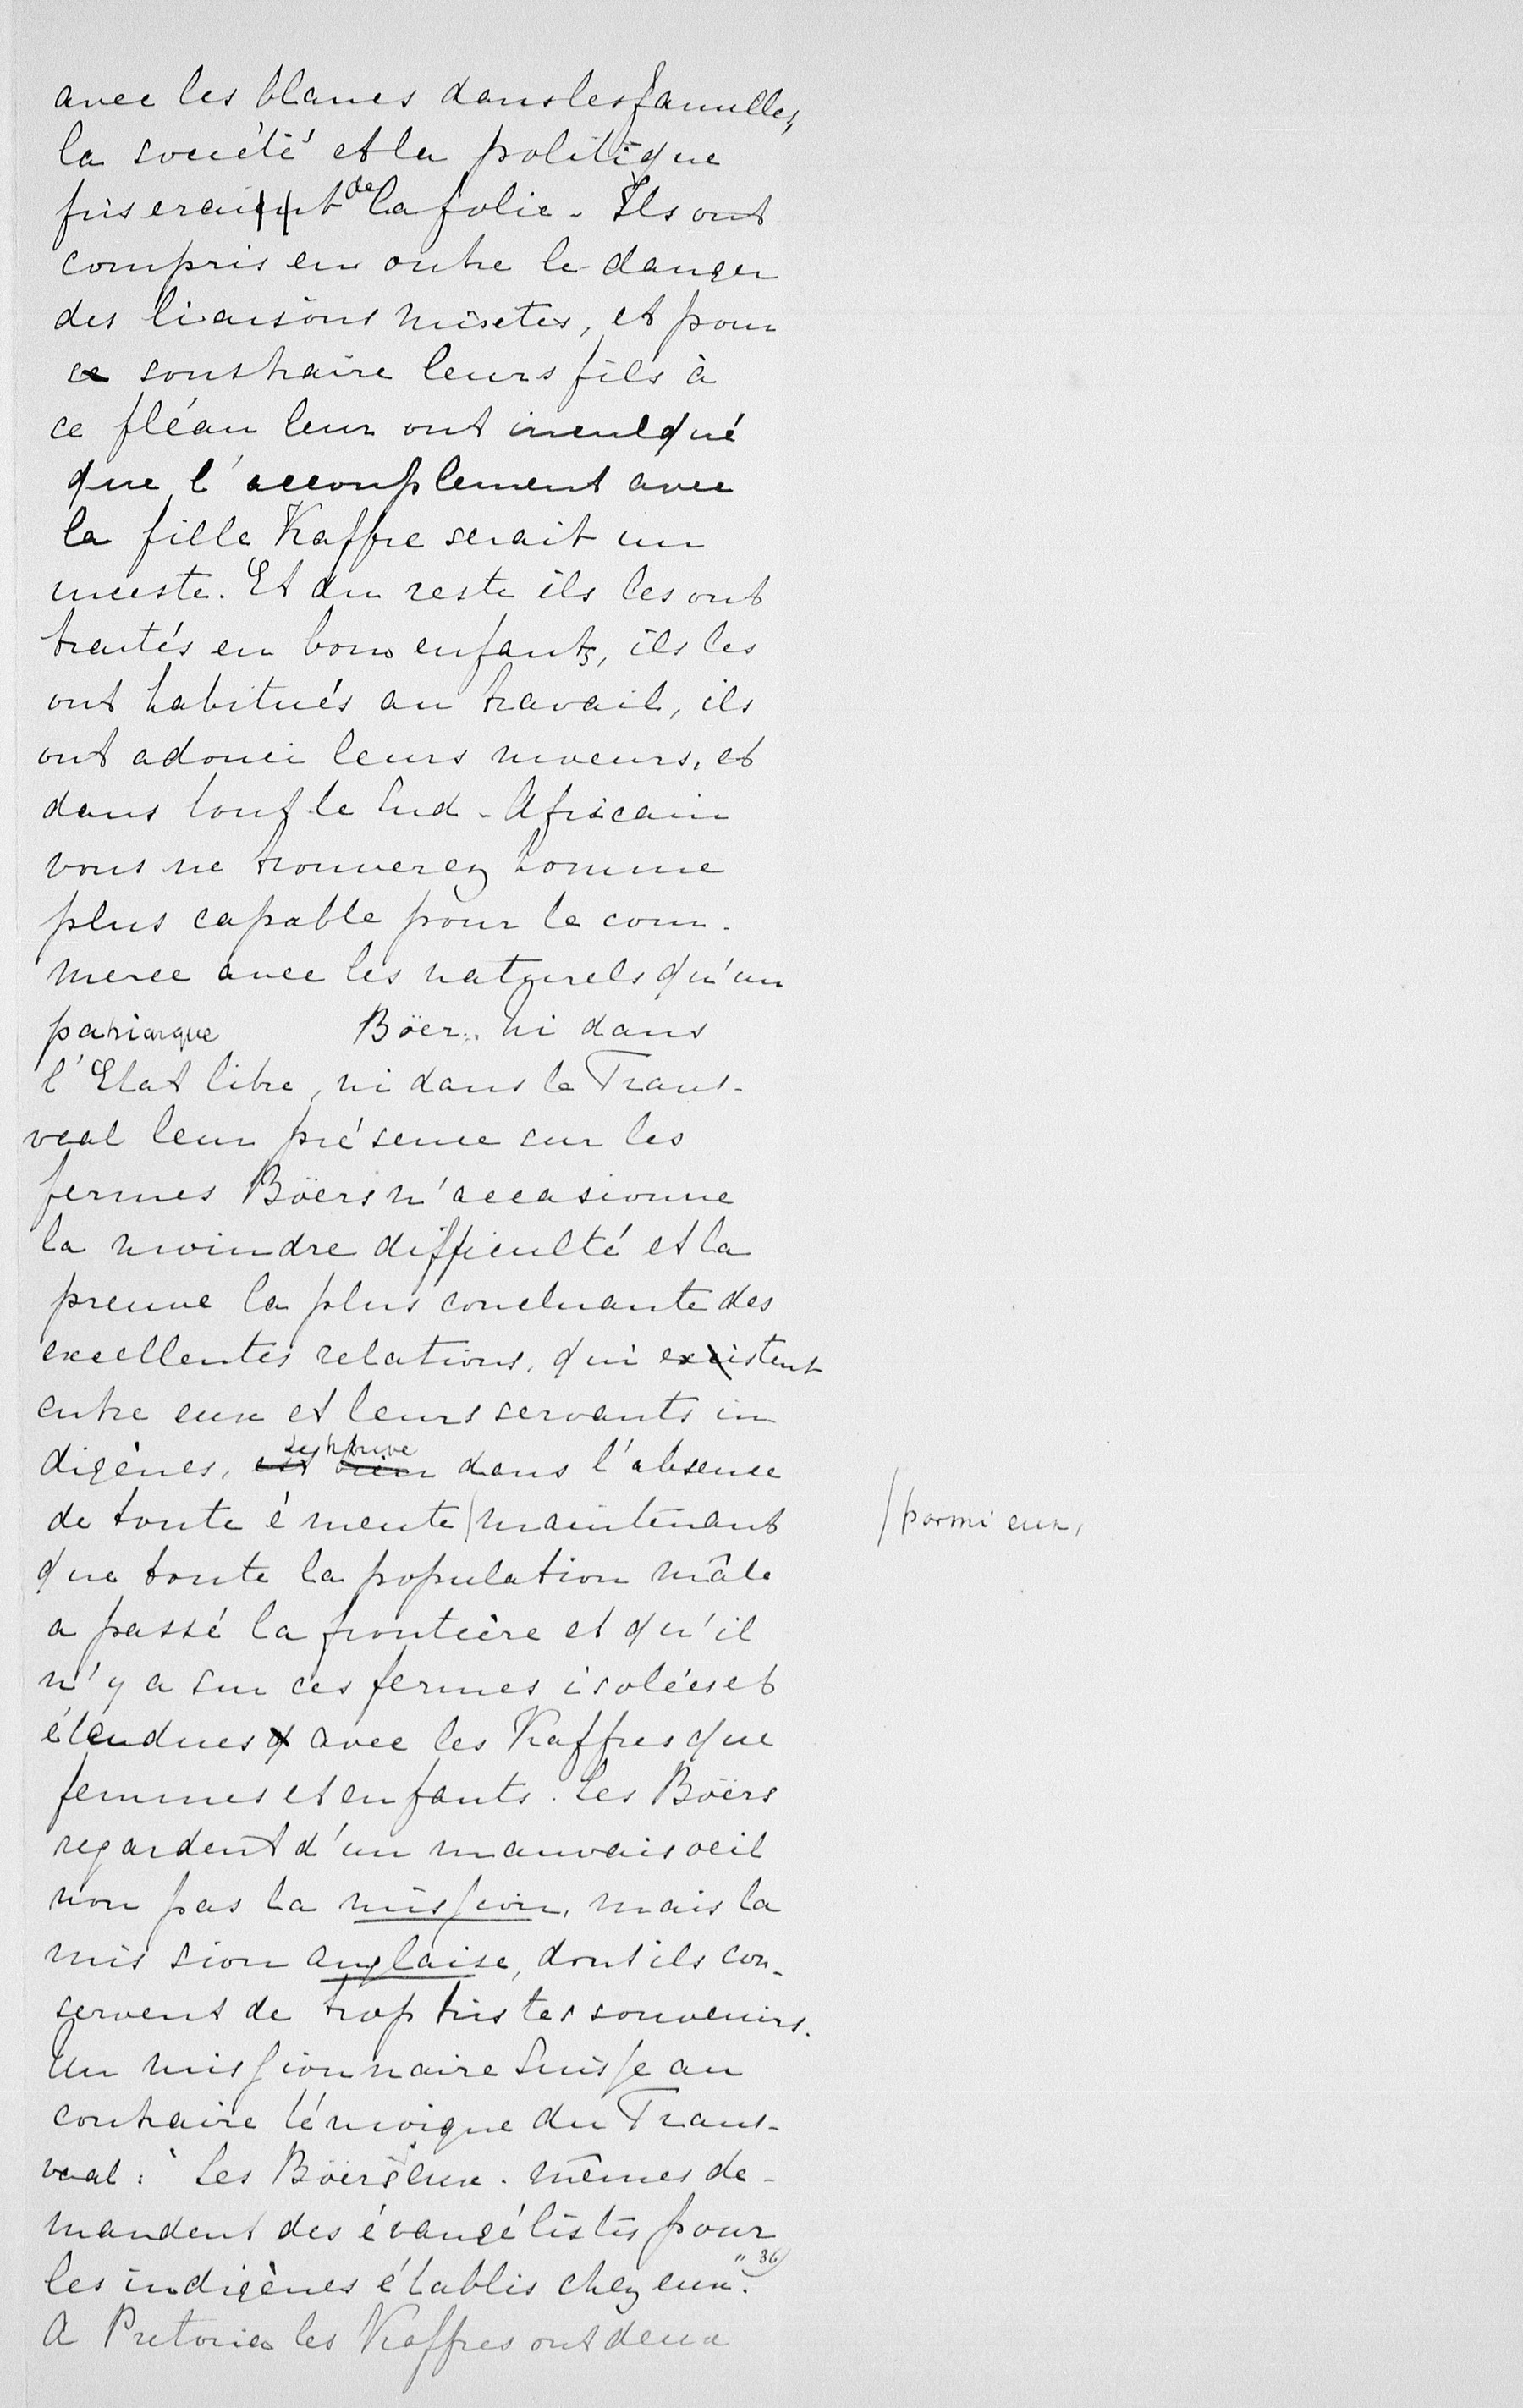 avec les blancs dans les familles,
la société et la politique
friserait de la folie. Ils ont
compris en outre le danger
des liaisons mixtes, et pour
soustraire leurs fils à
ce fléau leur ont inculqué
que l'accouplement avec
la fille Kaffre serait un
inceste. Et du reste ils les ont
traités en bons enfants, ils les
ont habitués au travail, ils
ont adouci leurs moeurs, et
dans tout le Sud-Africain
vous ne trouverez homme
plus capable pour le com-
merce avec les naturels qu'un
patriarque Böer. ni dans
l'Etat libre, ni dans le Trans-
vaal leur présence sur les
fermes Böers n'occasionne
la moindre difficulté et la
preuve la plus concluante des
excellentes relations, qui existent
entre eux et leurs servants in
digènes, se trouve dans l'absence
de toute émeute / maintenant
/ parmi eux,
que toute la population mâle
a passé la frontière et qu'il
n'y a sur ces fermes isolées et
étendues avec les Kaffres que
femmes et enfants. Les Böers
regardent d'un mauvais oeil
non pas la mission, mais la
mission anglaise, dont ils con-
servent de trop tristes souvenirs.
Un missionnaire Suisse au
contraire témoigne du Trans-
vaal: "Les Böers eux-mêmes de-
mandent des évangélistes pour
les indigènes établis chez eux." 36)
A Pretoria les Kaffres ont deux